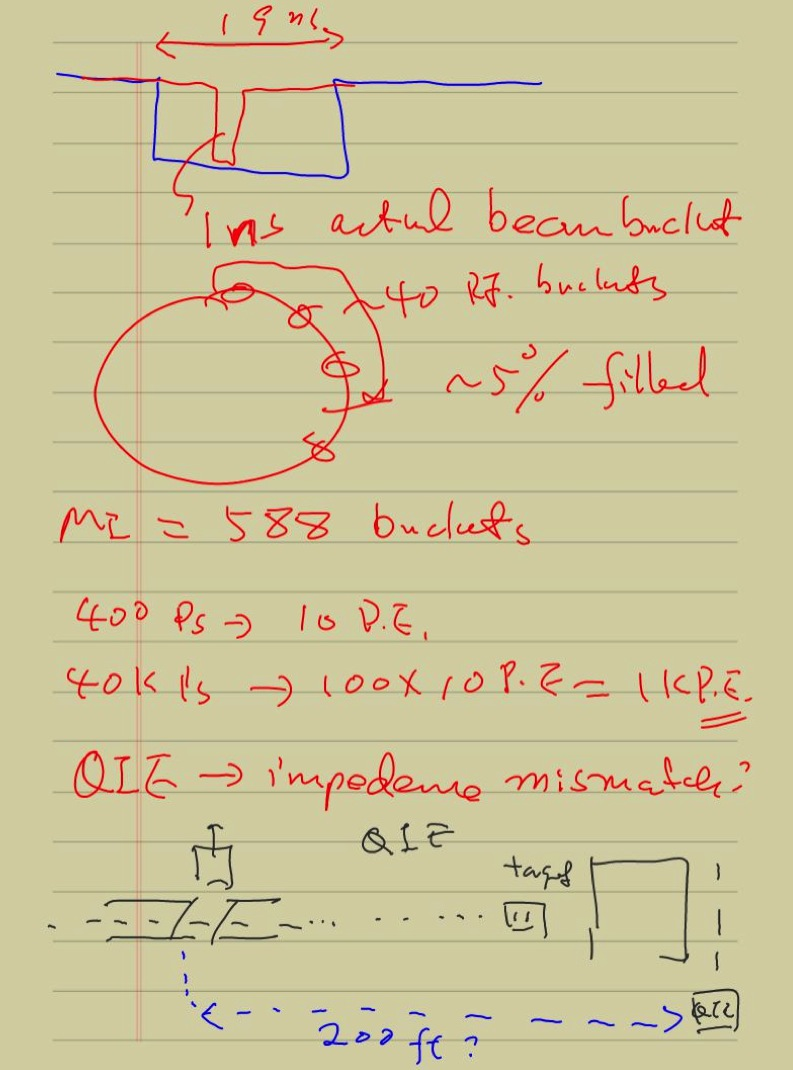 19 ns
1 ns actual beam bucket
~40 RF. buckets
~5% filled
MI = 588 buckets
400 Ps → 10 P.E.
40K P's → 100 X 10 P.E = 1K P.E.
QIE → impedance mismatch?
QIE
target
QIE
200 ft?